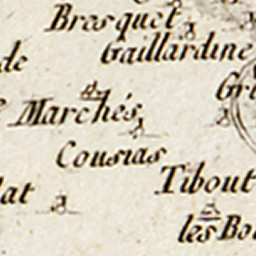 Bresquet
Gaillardine
de
Gri
Marchés
Cousias
Tibout
lat
les Bo